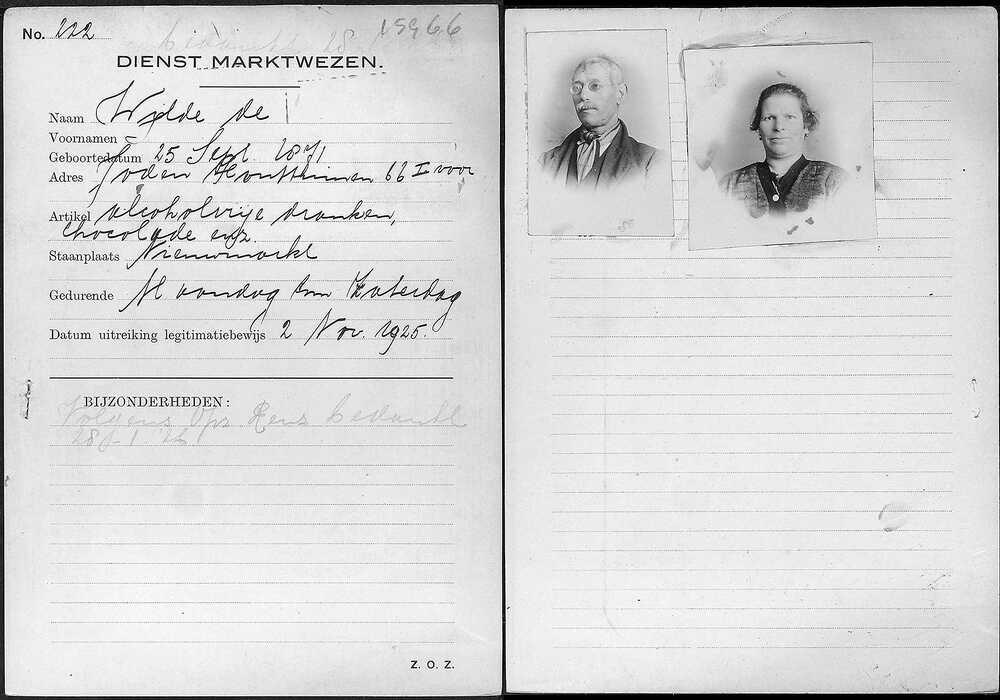 No. 222
15966
bedankt 28
DIENST MARKTWEZEN.
Naam Wilde de
Voornamen
Geboortedatum 25 Sept. 1871
Adres Joden Houttuinen 66 I voor
Artikel alcoholvrije dranken,
chocolade enz.
Staanplaats Nieuwmarkt
Gedurende Maandag t/m Zaterdag
Datum uitreiking legitimatiebewijs 2 Nov. 1925.
BIJZONDERHEDEN:
Volgens Opz. Rens bedankt
28-1 26
Z. O. Z.